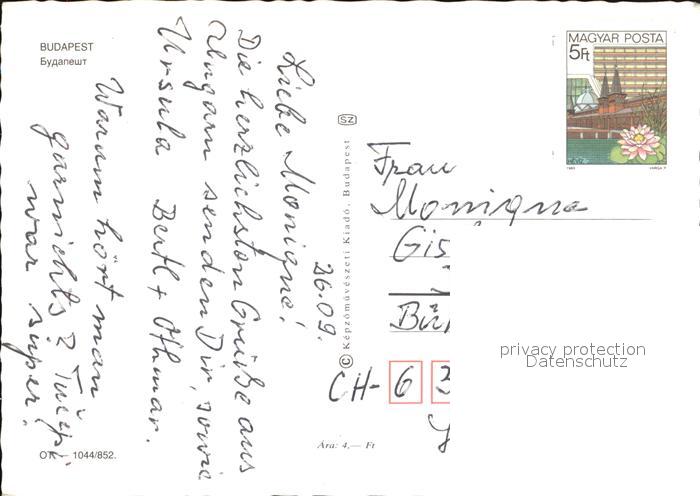 BUDAPEST
Будапешт
26.09.
Liebe Monique!
Die herzlichsten Grüße aus
Ungarn senden Dir, sowie
Ursula Bertl + Othmar.
Warum hört man
garnichts?
war super!
MAGYAR POSTA
5Ft
Frau
Monique
Gis
Bür
CH-6 3
privacy protection
Datenschutz
SZ
© Képzőművészeti Kiadó, Budapest
Ára: 4,— Ft
1044/852.